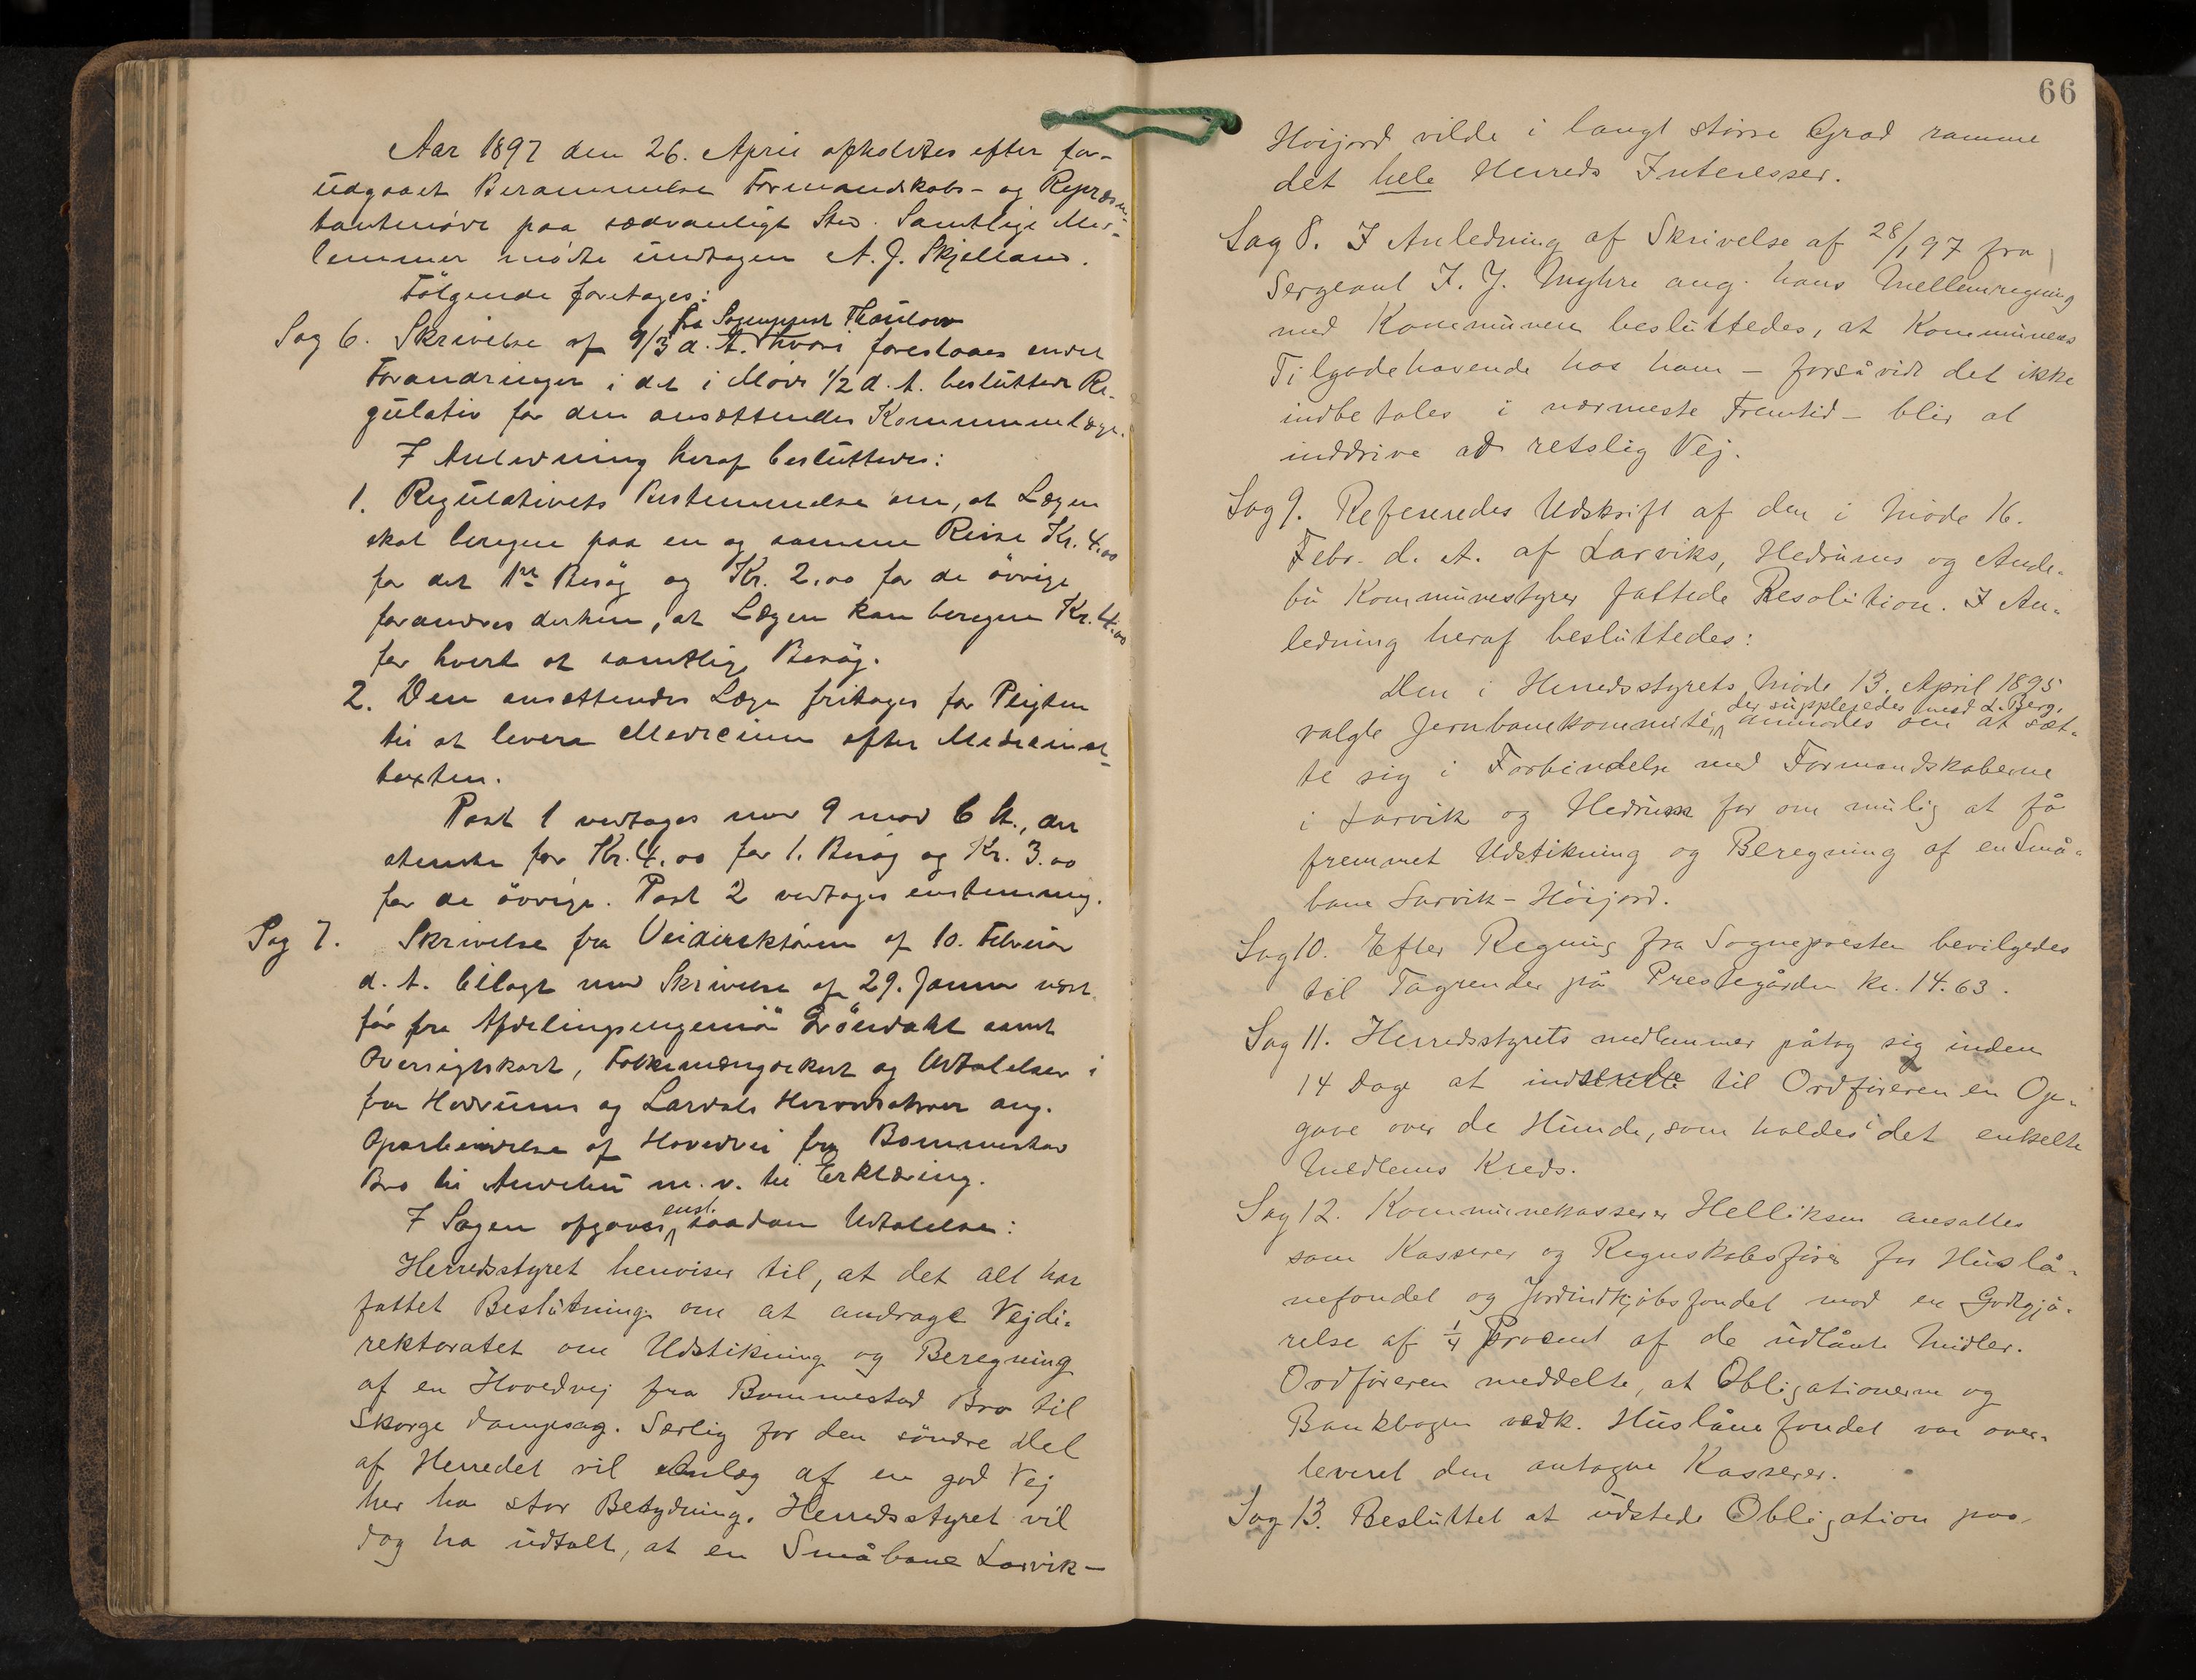 Aar 1897 den 26. April afholdtes efter for-
udgaaet Berammelse Formandskabs- og Repræsen-
tantmöde paa sædvanligt Sted. Samtlige Med-
lemmer mödte undtagen A. J. Skjelland.
Fölgende foretages:
fra Sogneprest Thaulow
Sag 6. Skrivelse af 9/3 d. A. hvori foreslaaes endel
Forandringer i det i Möde 1/2 d. A. besluttede Re-
gulativ for den ansættendes Kommunelæge.
I Anledning heraf besluttedes:
1. Regulativets Bestemmelse om, at Lægen
skal beregne paa en og samme Reise Kr. 4.00
for det 1ste Besög og Kr. 2.00 for de övrige
forandres derhen, at Lægen kan beregne Kr. 4.00
for hvert af samtlige Besög.
2. Den ansættendes Læge fritages for Pligten
til at levere Medicinen efter Medicinal-
taxten.
Post 1 vedtages med 9 mod 6 St., der
stemte for Kr. 4.00 for 1. Besög og Kr. 3.00
for de övrige. Post 2 vedtages enstemmig.
Sag 7. Skrivelse fra Veidirektören af 10. Februar
d. A. bilagt med Skrivelse af 29. Januar næst
för fra Afdelingsingeniör Gröndahl samt
Oversigtskart, Folkemængdekart og Udtalelser
fra Hedrums og Lardals Herredsstyrer ang.
Oparbeidelse af Hovedvei fra Bommestad
Bro til Andebu m. v. til Erklæring.
I Sagen afgaves enst. saadan Udtalelse:
Herredsstyret henviser til, at det alt har
fattet Beslutning om at andrage Vejdi-
rektoratet om Udstikning og Beregning
af en Hovedvej fra Bommestad Bro til
Skorge Dampsag. Særlig for den söndre Del
af Herredet vil Anlæg af en god Vej
her ha stor Betydning. Herredsstyret vil
dog ha udtalt, at en Småbane Larvik-
66
Höijord vilde i langt större Grad ramme
det hele Herreds Interesser.
Sag 8. I Anledning af Skrivelse af 28/1 97 fra
Sergeant I. J. Myhre ang. hans Mellemregning
med Kommunen besluttedes, at Kommunens
Tilgodehavende hos ham – forsåvidt det ikke
indbetales i nærmeste Fremtid – blir at
inddrive ad retslig Vej.
Sag 9. Refereredes Udskrift af den i Möde 16.
Febr. d. A. af Larviks, Hedrums og Ande-
bu Kommunestyrer fattede Resolution. I An-
ledning heraf besluttedes:
Den i Herredsstyrets Möde 13. April 1895
der suppleredes med L. Berg,
valgte Jernbanekommité, anmodes om at sæt-
te sig i Forbindelse med Formandskaberne
i Larvik og Hedrum for om mulig at få
fremmet Udstikning og Beregning af en Små-
bane Larvik – Höijord.
Sag 10. Efter Regning fra Sognepresten bevilgedes
til Tagrender på Prestegården kr. 14.63.
Sag 11. Herredsstyrets medlemmer påtog sig inden
14 Dage at indsende til Ordföreren en Op-
gave over de Hunde, som holdes i det enkelte
Medlems Kreds.
Sag 12. Kommunekasserer Helliksen ansattes
som Kasserer og Regnskabsförer for Huslå-
nefondet og Jordindkjöbsfondet mod en Godtgjö-
relse af 1/4 Procent af de udlånte Midler.
Ordföreren meddelte, at Obligationerne og
Bankbogen vedk. Huslånefondet var over-
leveret den antagne Kasserer.
Sag 13. Besluttet at udstede Obligation paa